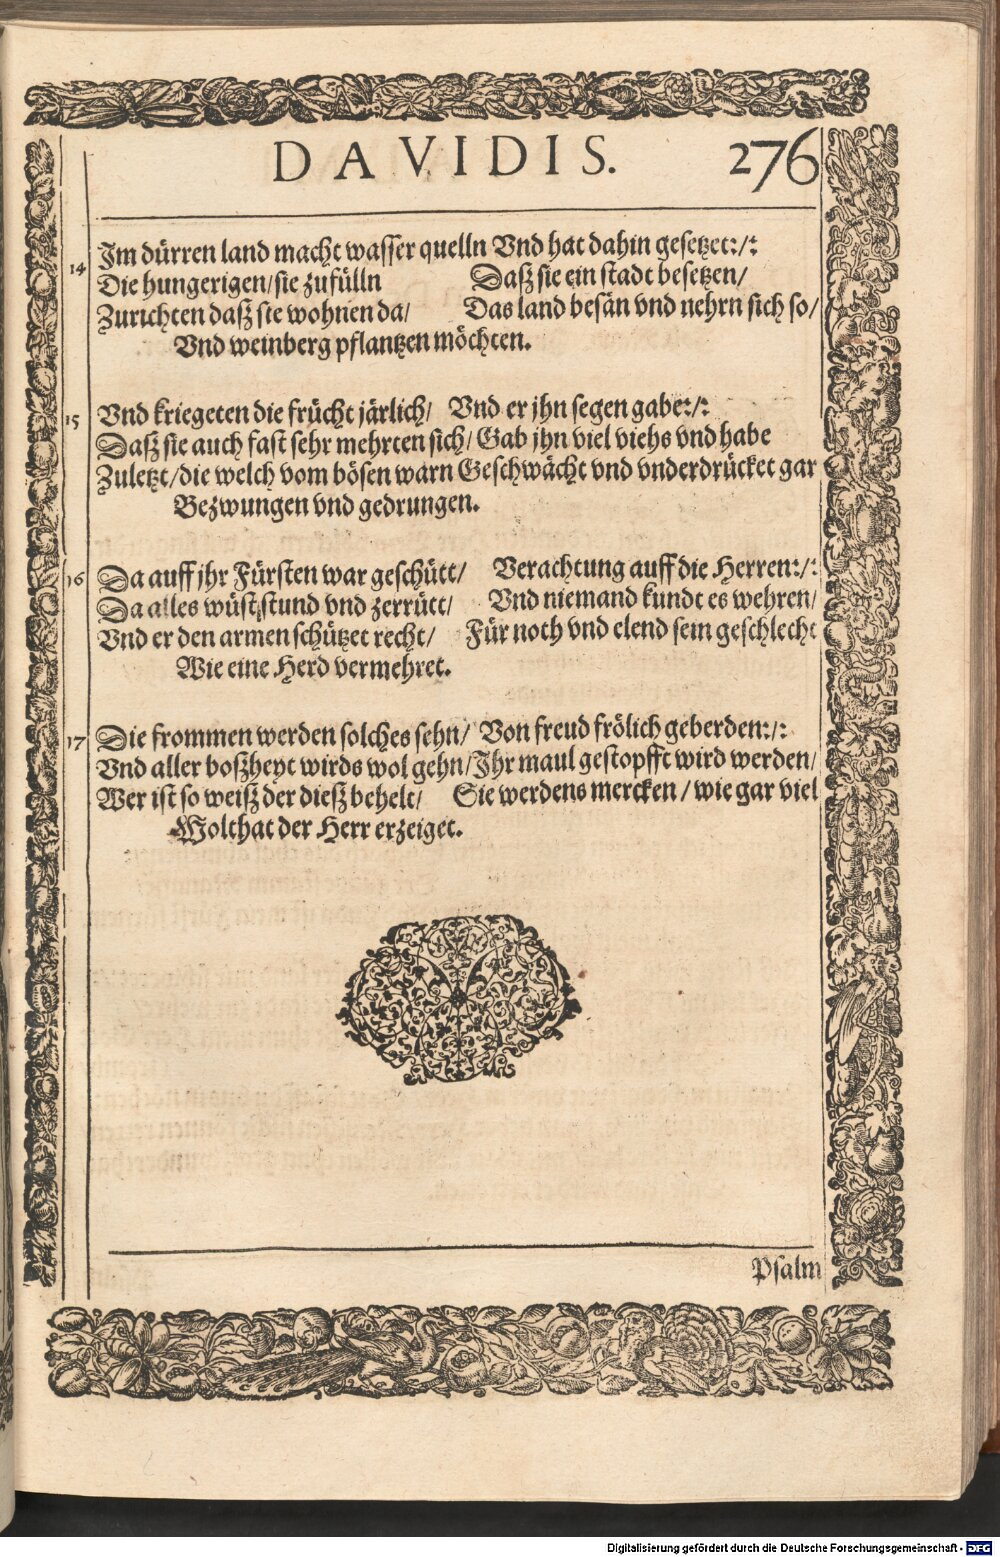 DAVIDIS. 276
14 Im dürren land macht wasser quelln Vnd hat dahin gesetzet:/:
Die hungerigen/sie zufülln Dasz sie ein stadt besetzen/
Zurichten dasz sie wohnen da/ Das land besän vnd nehrn sich so/
Vnd weinberg pflantzen möchten.
15 Vnd kriegeten die frücht järlich/ Vnd er jhn segen gabe:/:
Dasz sie auch fast sehr mehrten sich/ Gab jhn viel viehs vnd habe
Zuletzt/die welch vom bösen warn Geschwächt vnd vnderdrücket gar
Bezwungen vnd gedrungen.
16 Da auff jhr Fürsten war geschütt/ Verachtung auff die Herren:/:
Da alles wüst stund vnd zerrütt/ Vnd niemand kundt es wehren/
Vnd er den armen schützet recht/ Für noch vnd elend sein geschlecht
Wie eine Herd vermehret.
17 Die frommen werden solches sehn/ Von freud frölich geberden:/:
Vnd aller boszheyt wirds wol gehn/Ihr maul gestopfft wird werden/
Wer ist so weisz der diesz behelt/ Sie werdens mercken/wie gar viel
Wolthat der Herr erzeiget.
Psalm
Digitalisierung gefördert durch die Deutsche Forschungsgemeinschaft - DFG